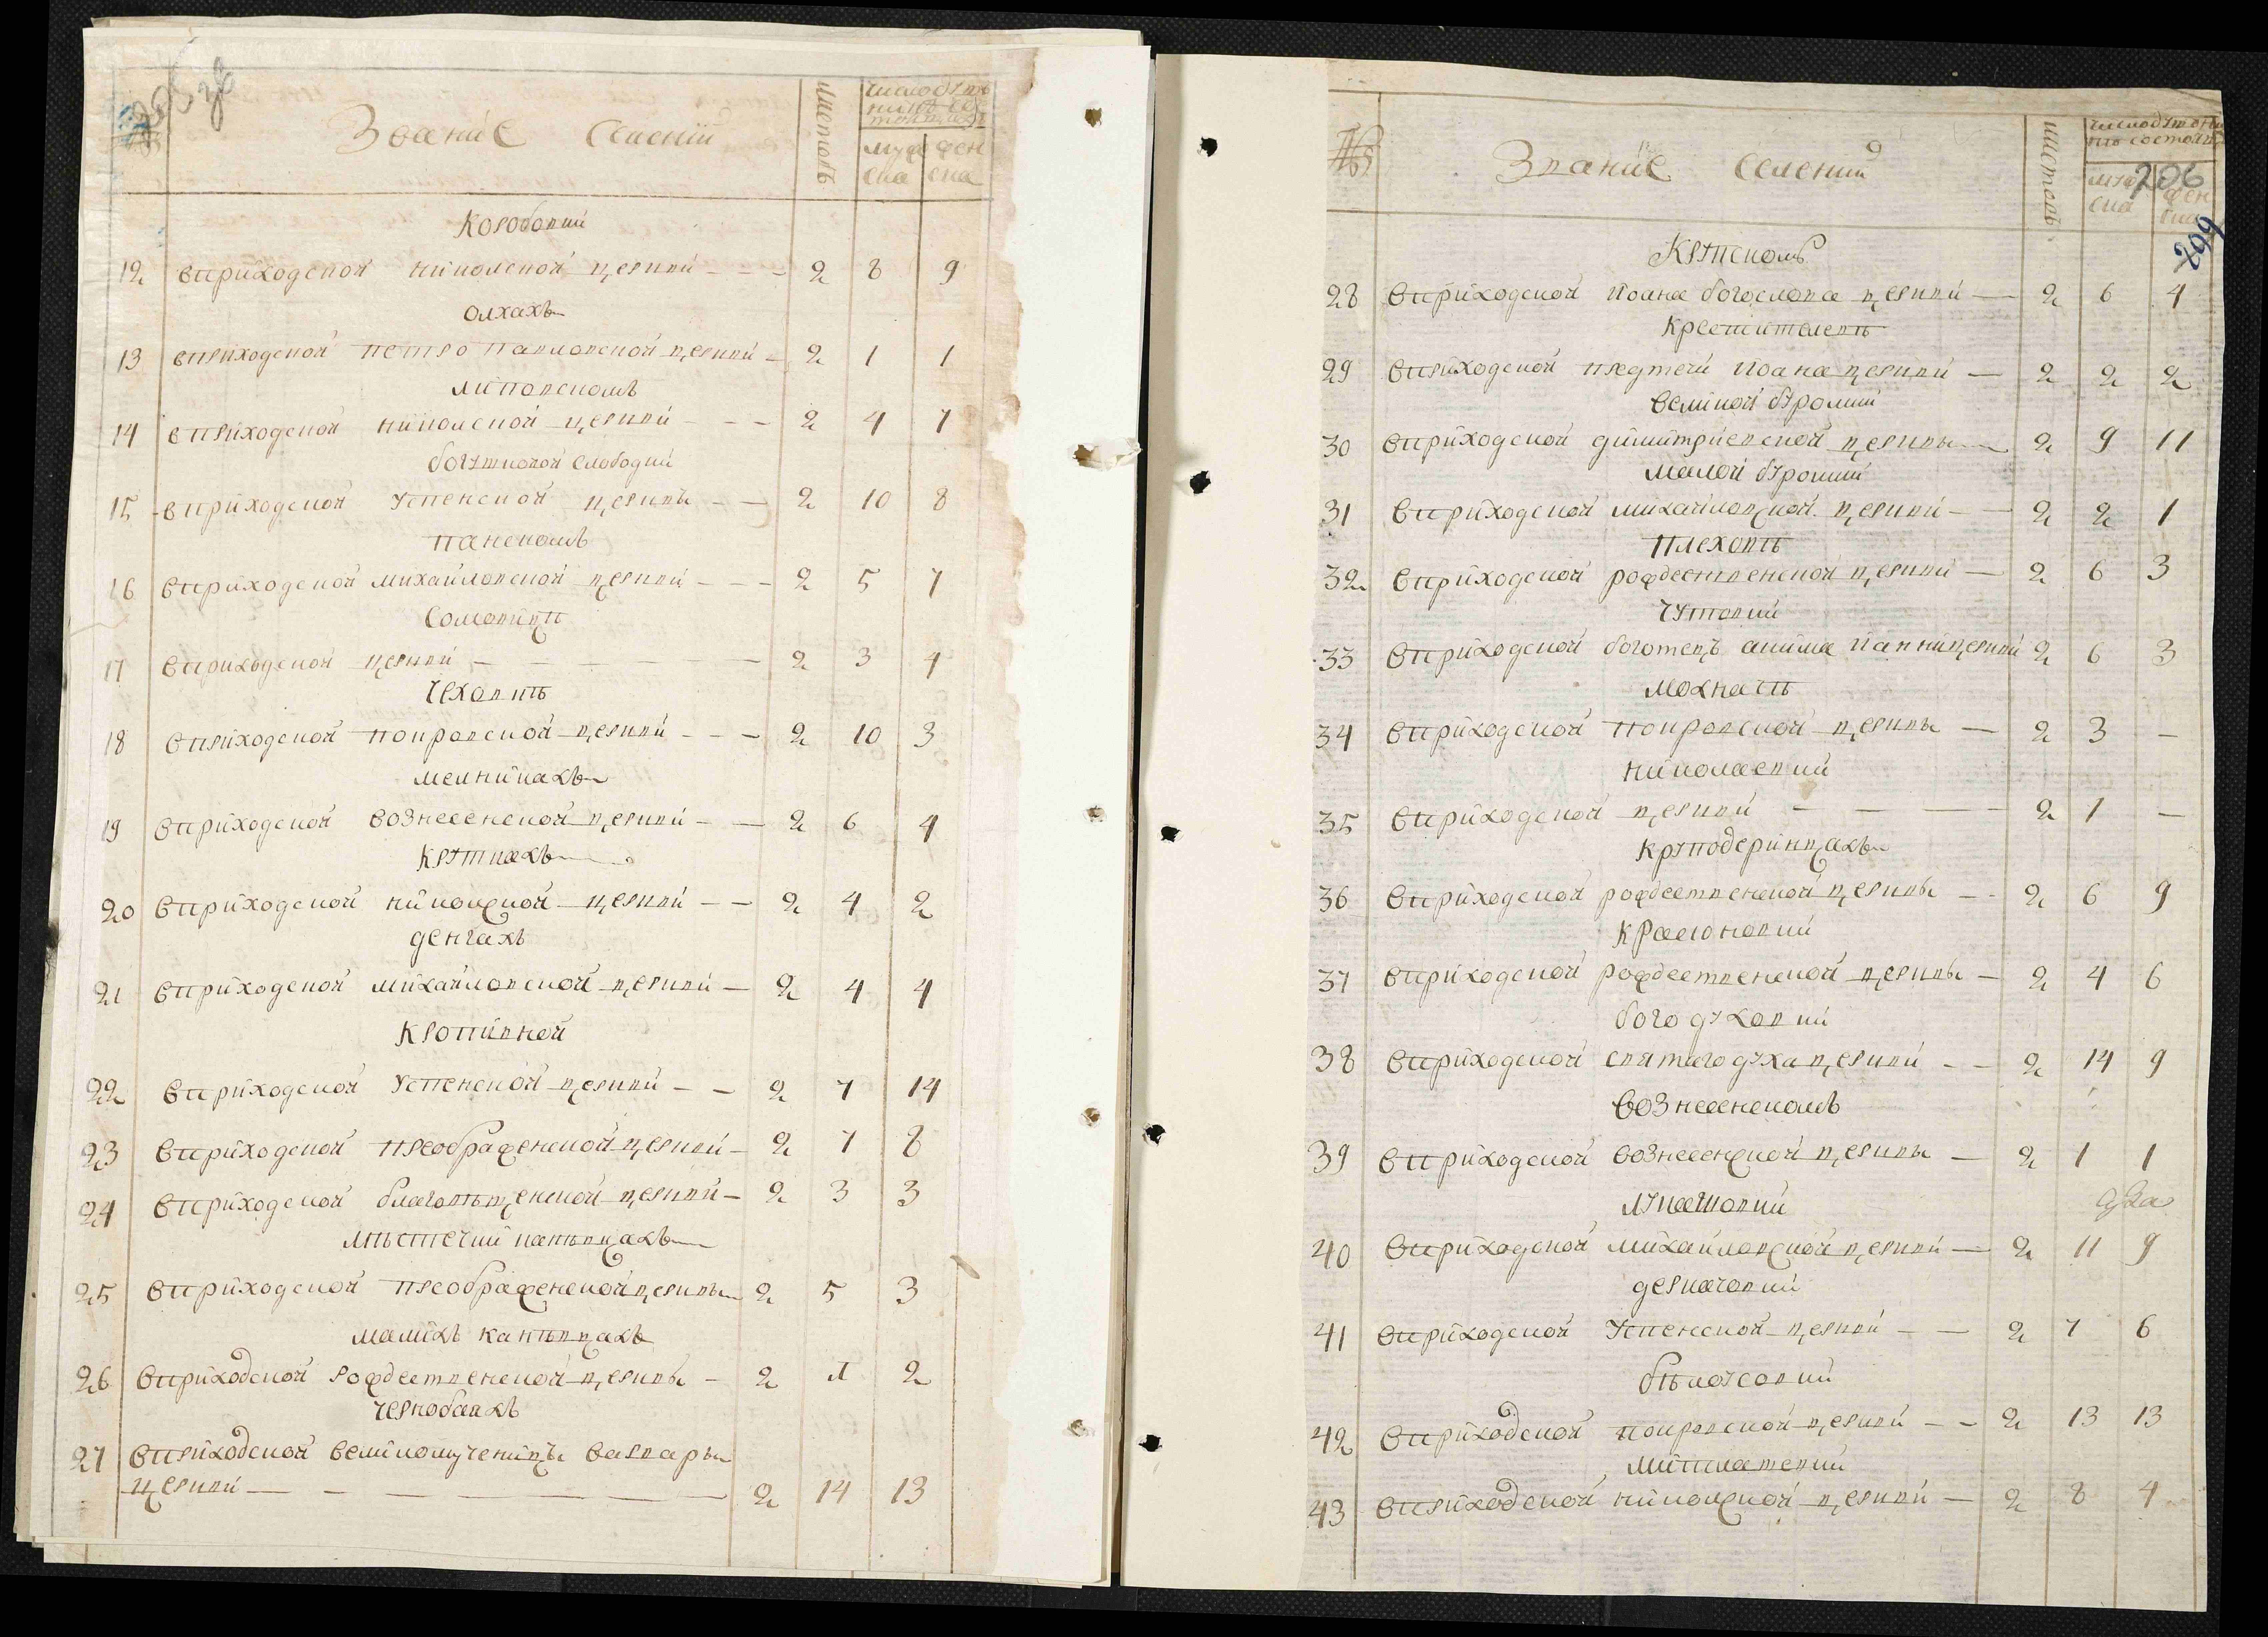 Званіе Селеній
листовъ
число душъ
въ нихъ со
тоящихъ
муж жен
ска ска
Коробовки
12 вприходской николской церкви - - - 2 8 9
Олхахъ
13 вприходской петро павловской церкви - 2 1 1
Липовскомъ
14 вприходской николской церкви - - 2 4 7
богушковой слободки
15 вприходской Успенской церквы - - 2 10 8
Панскомъ
16 вприходской михайловской церкви - - - 2 5 7
Сомовицы
17 вприходской церкви - - - - 2 3 4
Чеховкѣ
18 вприходской покровской церкви - - - 2 10 3
мелникахъ
19 вприходской вознесенской церкви - - 2 6 4
Круткахъ
20 вприходской николской церкви - - 2 4 2
денгахъ
21 вприходской михайловской церкви - 2 4 4
Кропивной
22 вприходской Успенской церкви - - 2 7 14
23 вприходской преображенской церкви - 2 7 8
24 вприходской благовѣщенской церкви - 2 3 3
мѣстечки канѣвцахъ
25 вприходской преображенской церквы 2 5 3
малихъ канѣвцахъ
26 вприходской рождественской церквы - 2 1 2
чернобаяхъ
27 вприходской великомученицы варвары
церкви - - - - - 2 14 13
№
Званіе Селеній
листовъ
206
муж жен
ска ска
299
Крутскомъ
28 вприходской Иоана богослова церкви - 2 6 4
Крестителевѣ
29 вприходской предтечи Иоана церкви - 2 2 2
великой буромки
30 вприходской димитриевской церквы 2 9 11
малой буромки
31 вприходской михайловской церкви - 2 2 1
Плеховѣ
32 вприходской рождественской церкви - 2 6 3
Чутовки
33 вприходской боготецъ акима и анни церкви 2 6 3
мохначѣ
34 вприходской покровской церквы - 2 3 -
николаевки
35 вприходской церкви - - - 2 1 -
Круподеринцахъ
36 вприходской рождественской церквы - - 2 6 9
Красіоновки
37 вприходской рождественской церквы - 2 4 6
богодуховки
38 вприходской святаго духа церкви - - 2 14 9
вознесенскомъ
39 вприходской вознесенской церквы - 2 1 1
лукашовки
два
40 вприходской михайловской церкви - 2 11 9
деркачовки
41 вприходской Успенской церкви - - 2 7 6
бѣлоусовки
42 вприходской покровской церкви - - 2 13 13
митлашевки
43 вприходской николской церкви - 2 8 4